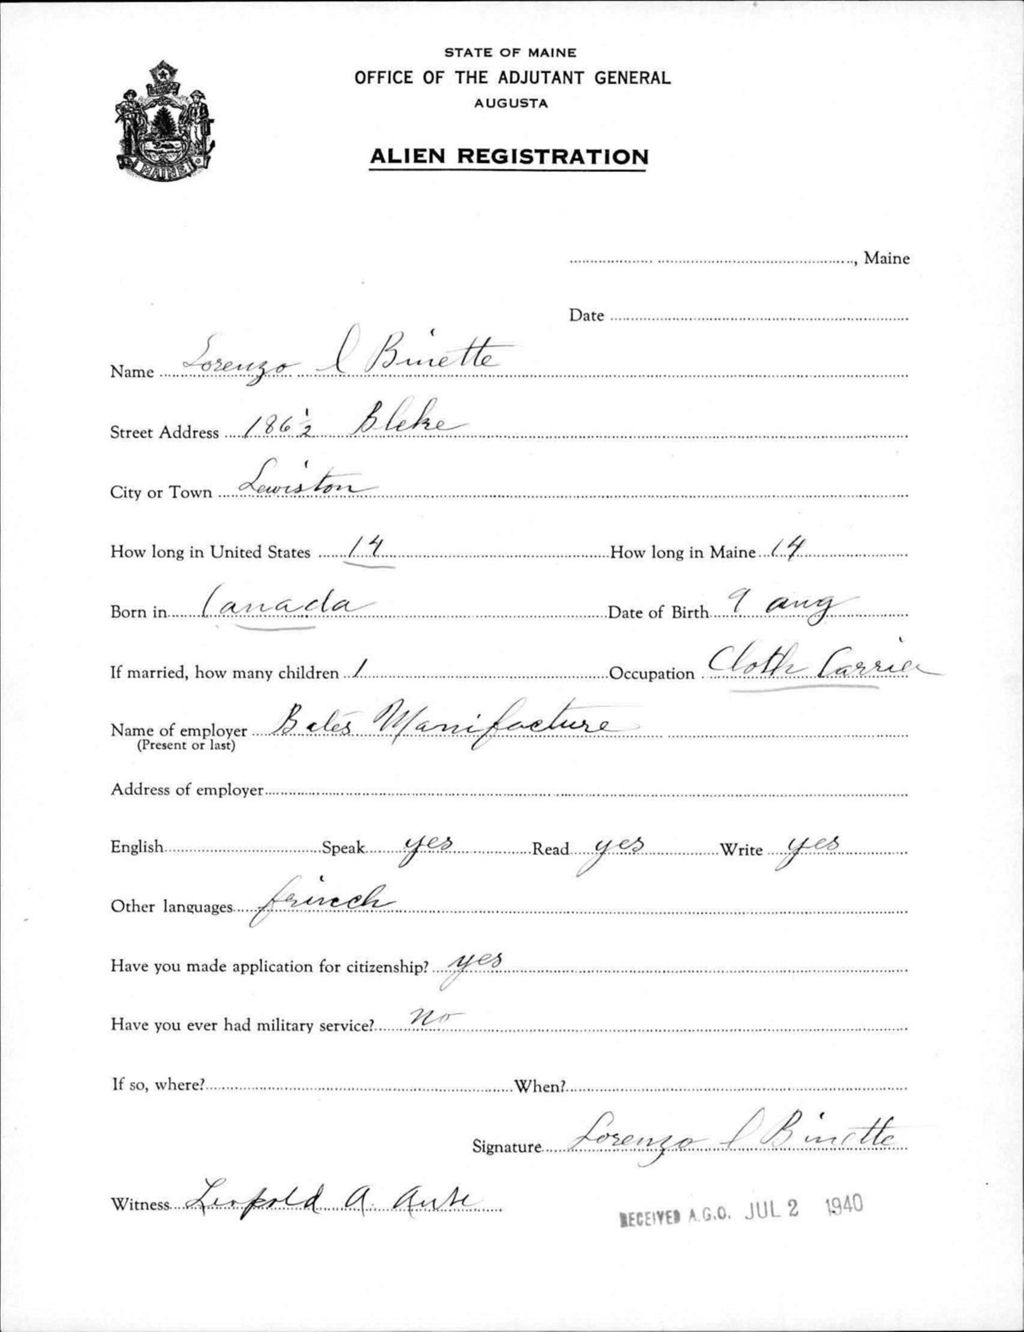 STATE OF MAINE
OFFICE OF THE ADJUTANT GENERAL
AUGUSTA
ALIEN REGISTRATION
MAINE
, Maine
Date
Name Lorenzo l Binette
Street Address 186 1/2 Bleke
City or Town Lewiston
How long in United States 14 How long in Maine 14
Born in Canada Date of Birth 9 aug
If married, how many children 1 Occupation Cloth Carrier
Name of employer Bates Manifacture
(Present or last)
Address of employer
English Speak yes Read yes Write yes
Other languages frinch
Have you made application for citizenship? yes
Have you ever had military service? no
If so, where? When?
Signature Lorenzo l Binette
Witness Leopold A.
RECEIVED A.G.O. JUL 2 1940